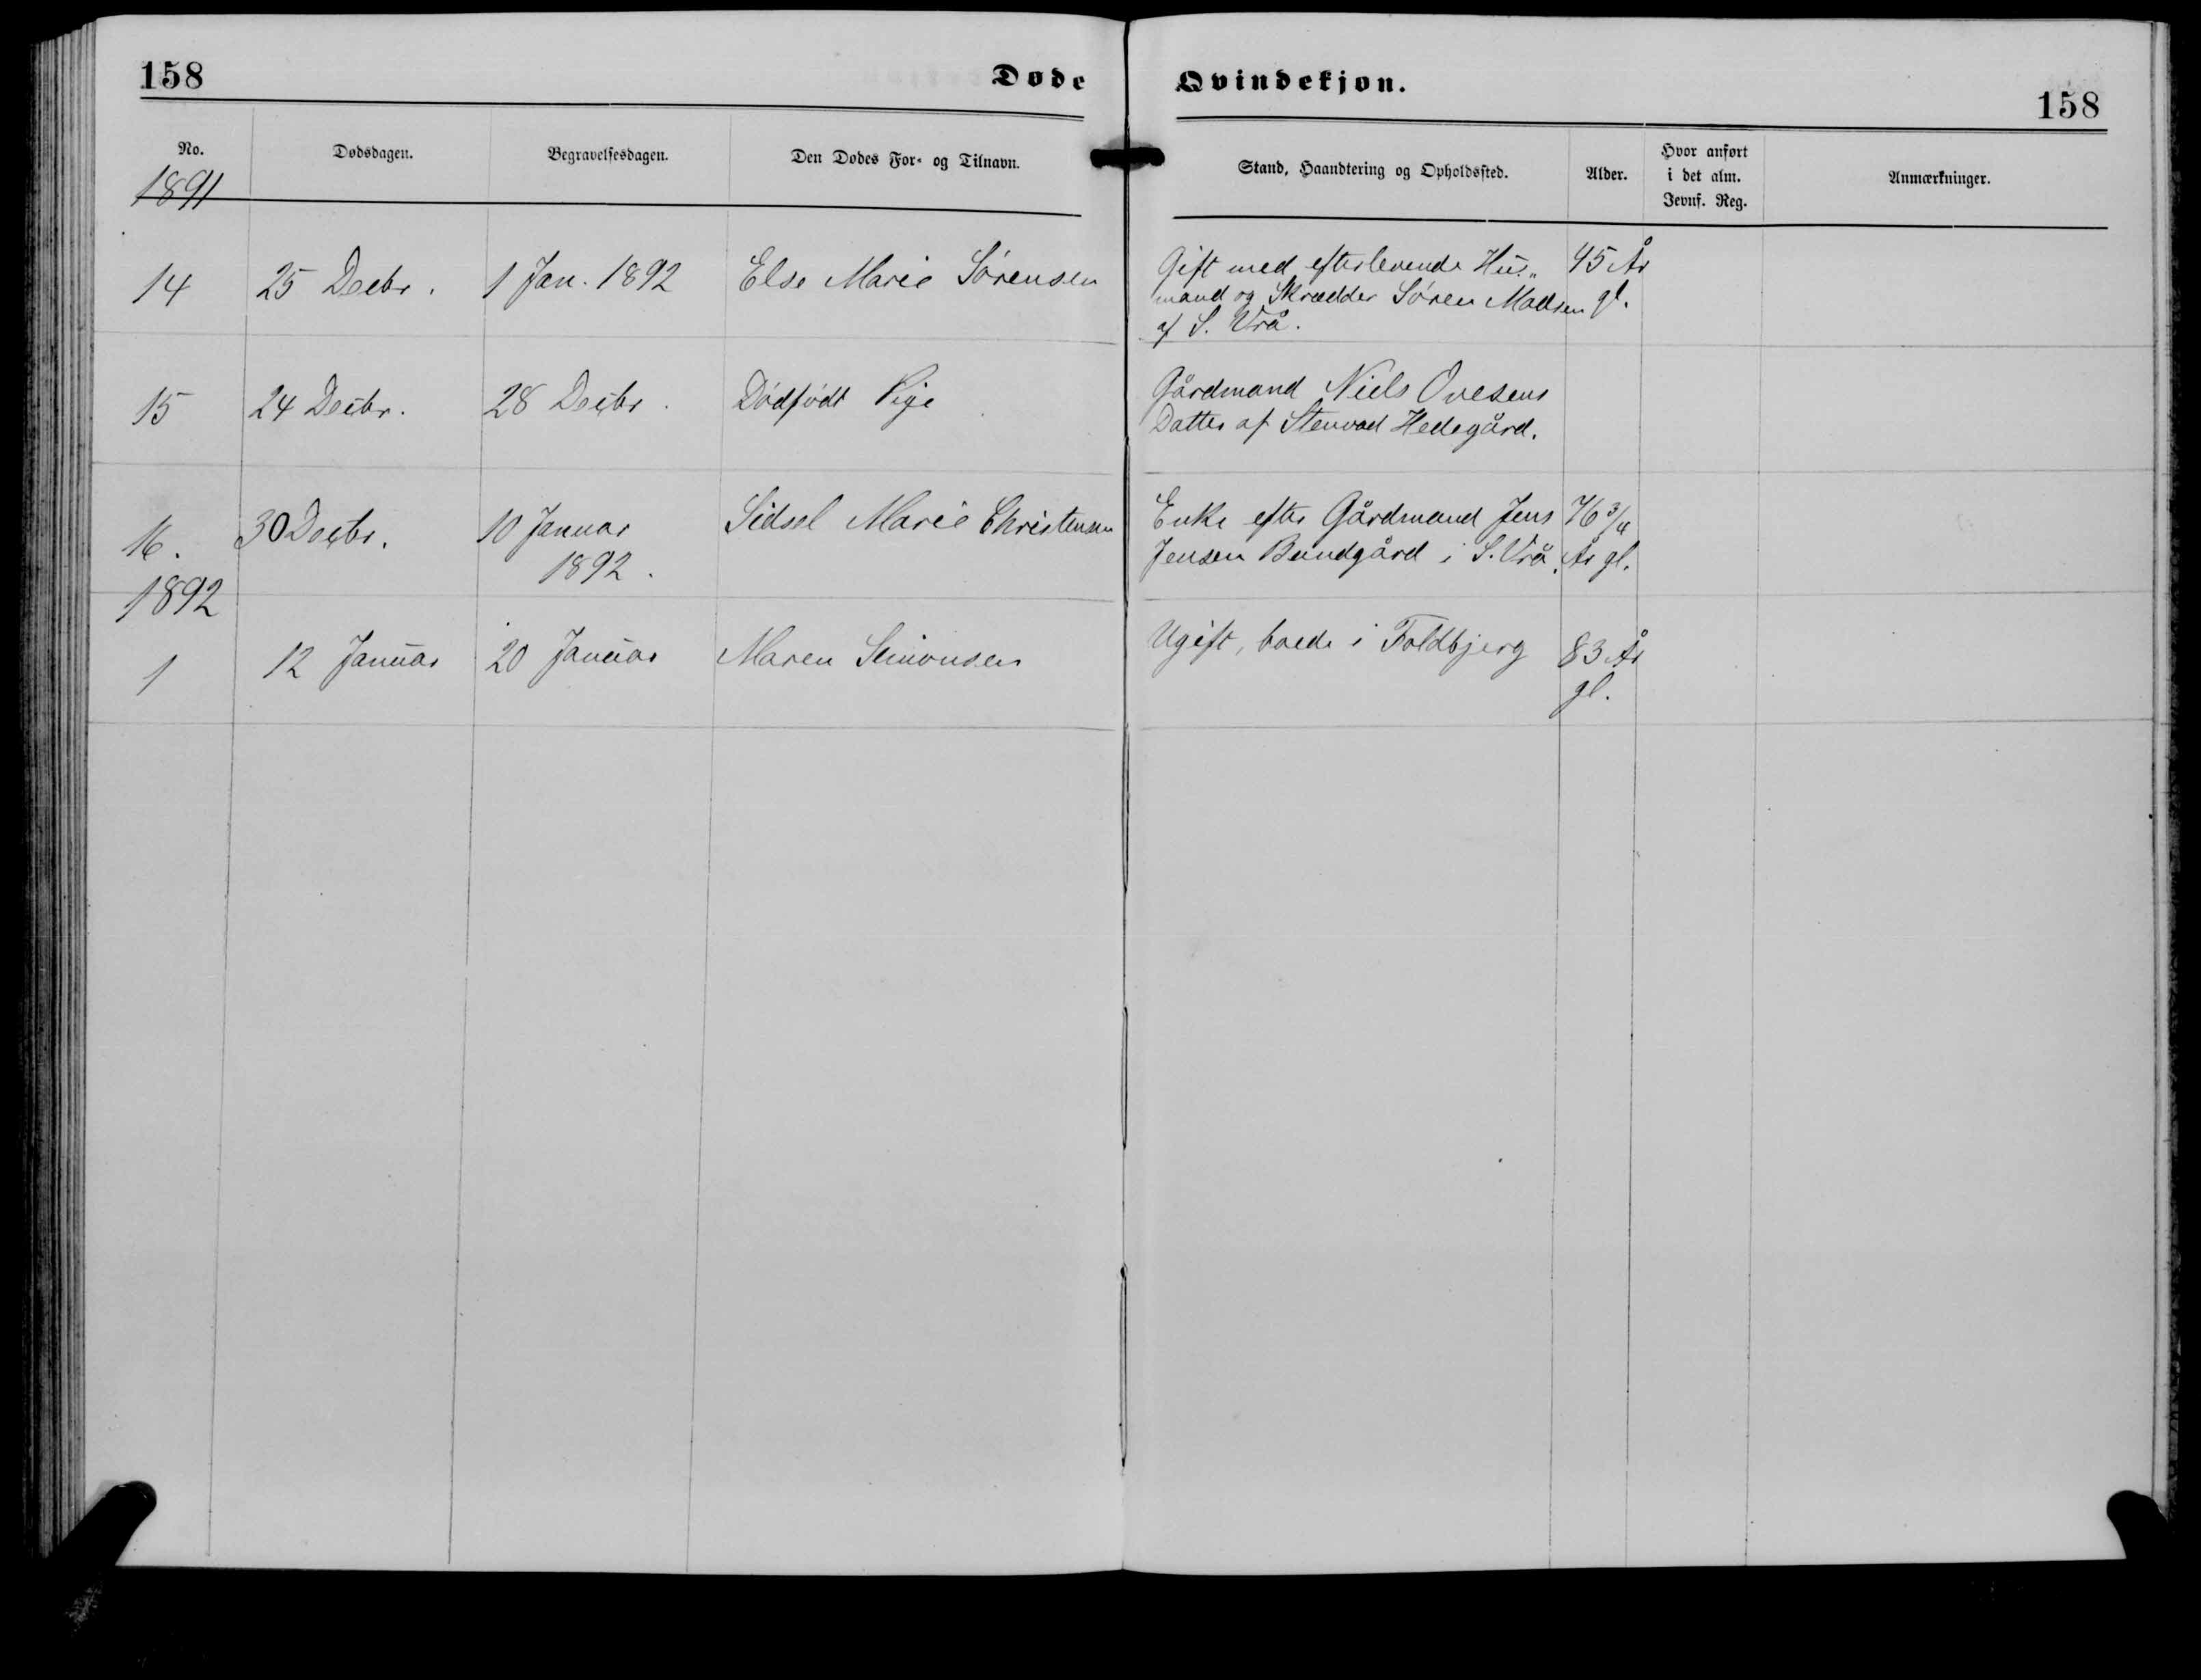 158
Døde
Qvindekjøn.
158
No.
Dødsdagen.
Begravelsesdagen.
Den Dødes For- og Tilnavn.
Stand, Haandtering og Opholdssted.
Alder.
Hvor anført
i det alm.
Jevnf. Reg.
Anmærkninger.
1891
14
25 Decbr.
1 Jan. 1892
Else Marie Sørensen
Gift med efterlevende Hus„
mand og Skrædder Søren Madsen
af S. Vrå.
45 År
gl.
15
24 Decbr.
28 Decbr.
Dødfødt Pige
Gårdmand Niels Ovesens
Datter af Stenvad Hedegård.
16.
30 Decbr.
10 Januar
1892.
Sidsel Marie Christensen
Enke efter Gårdmand Jens
Jensen Bundgård i S. Vrå.
76 3/4
År gl.
1892
1
12 Januar
20 Januar
Maren Simonsen
Ugift, boede i Foldbjerg
83 År
gl.